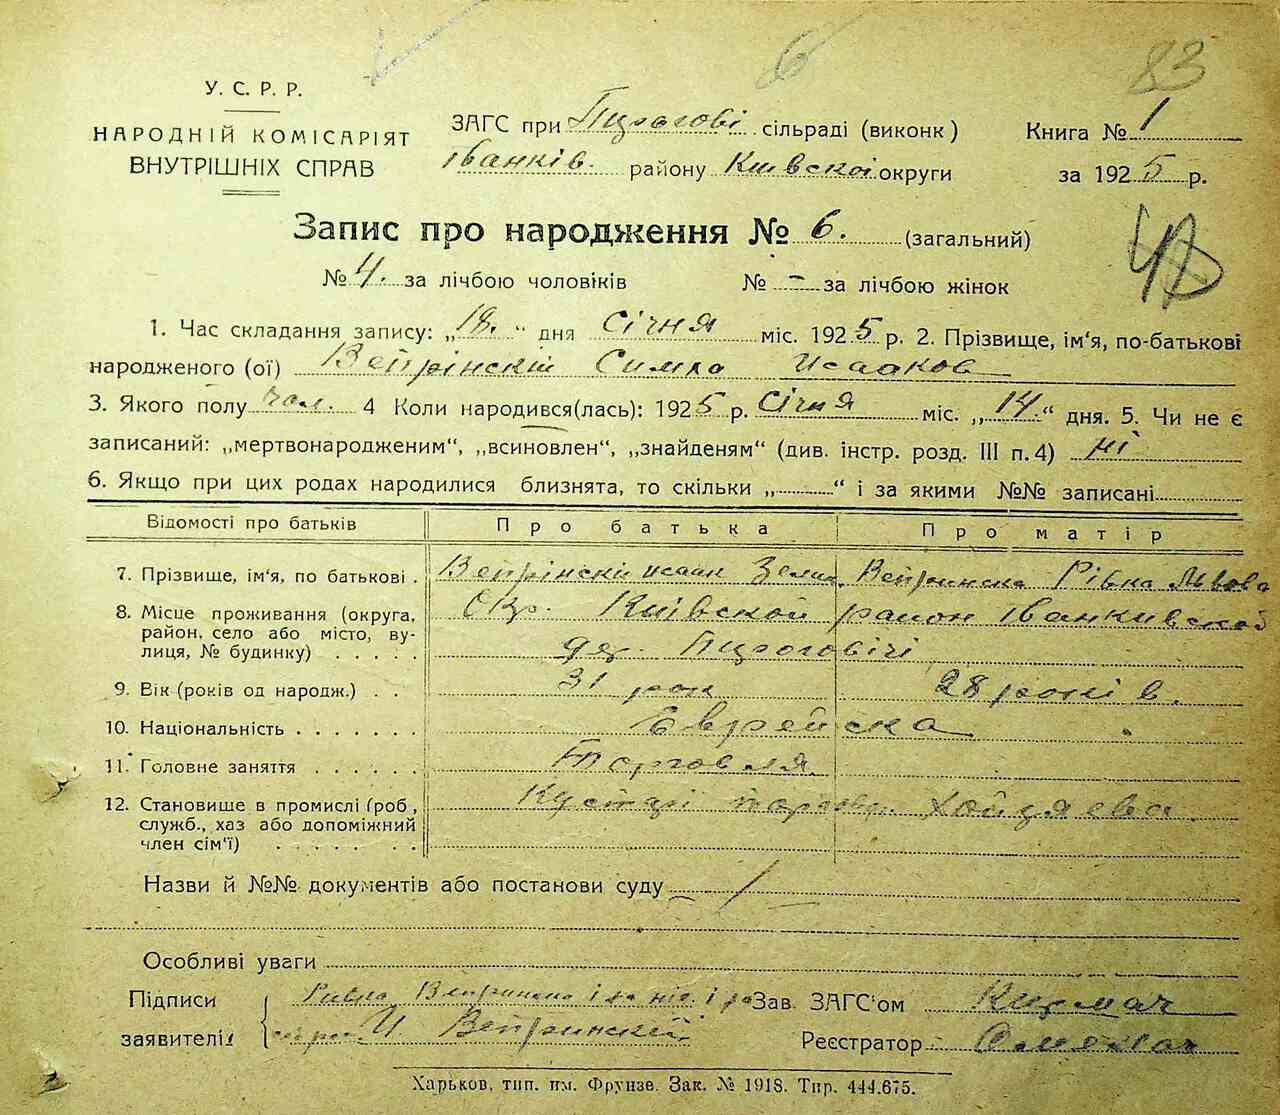 6
83
У. С. Р. Р.
НАРОДНІЙ КОМІСАРІЯТ
ВНУТРІШНІХ СПРАВ
ЗАГС при сільраді (виконк)
Іванків. району Київскоі округи
Книга № 1
за 1925 р.
Запис про народження № 6. (загальний)
№ 4. за лічбою чоловіків № – за лічбою жінок
1. Час складання запису: „18.“ дня Січня міс. 1925 р. 2. Прізвище, ім'я, по-батькові
народженого (ої) Вейрінскій Симха Исааков
3. Якого полу чол. 4 Коли народився(лась): 1925 р. Січня міс. „14.“ дня. 5. Чи не є
записаний: „мертвонародженим“, „всиновлен“, „знайденям“ (див. інстр. розд. III п. 4) ні
6. Якщо при цих родах народилися близнята, то скільки „ “ і за якими №№ записані
Відомості про батьків Про батька Про матір
7. Прізвище, ім'я, по батькові . Вейрінски исаак Вейринска Рівка Львова
8. Місце проживання (округа, район, село або місто, вулиця, № будинку) . . . . . Окр. Київской район Іванкивской
9. Вік (років од народж.) . . 31 рок 28 років.
10. Національність . . . . . . . Еврейска
11. Головне заняття . . . . . . Торговля
12. Становище в промислі (роб, служб., хаз або допоміжний член сім'ї) . . . . . . . Кустарі
Назви й №№ документів або постанови суду /
Особливі уваги
Підписи Ривка Вейринска Зав. ЗАГС'ом
заявителів И Вейринскій Реєстратор
Харьков, тип. им. Фрунзе. Зак. № 1918. Тир. 444.675.